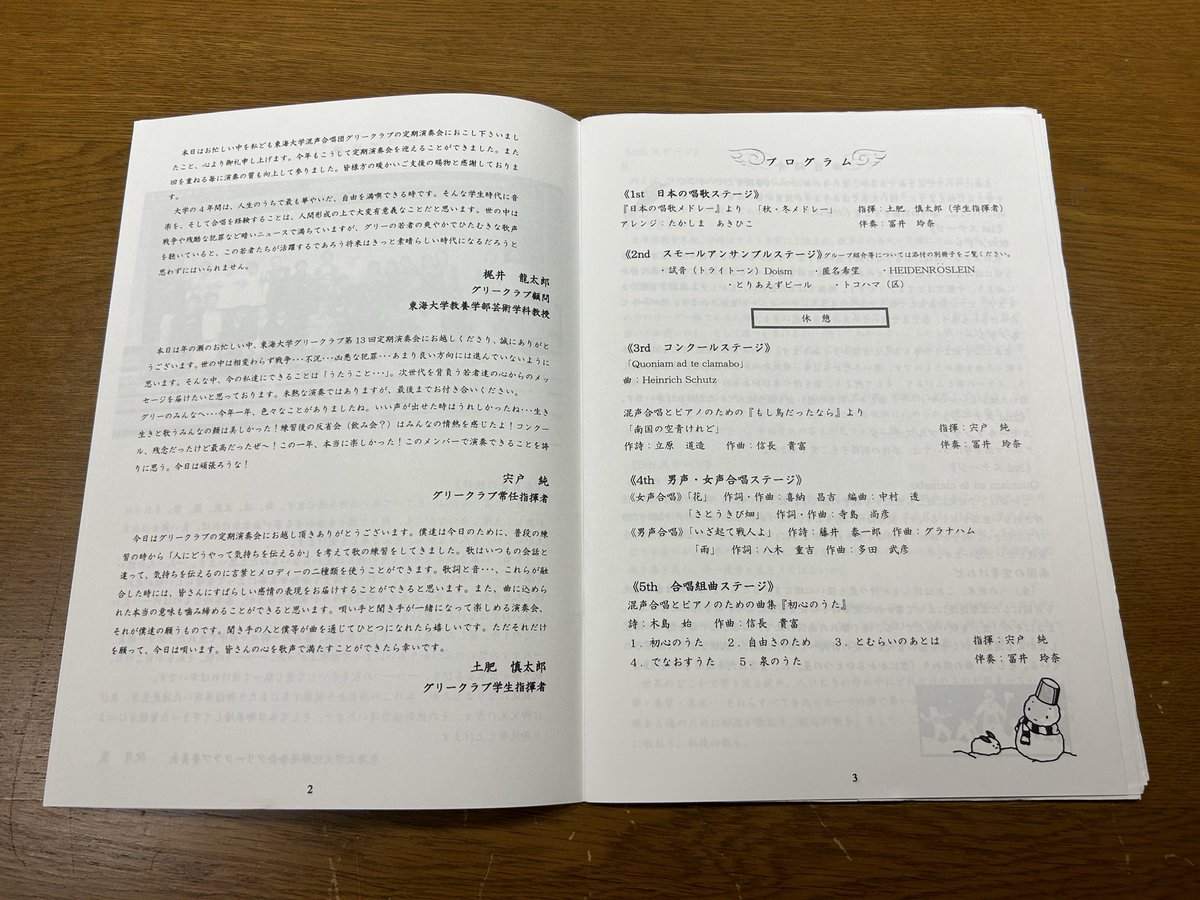 本日はお忙しい中を私ども東海大学混声合唱団グリークラブの定期演奏会におこし下さいまし
たこと、心より御礼申し上げます。今年もこうして定期演奏会を迎えることができました。また
回を重ねる毎に演奏の質も向上して参りました。皆様方の暖かいご支援の賜物と感謝しておりま
す。
大学の4年間は、人生のうちで最も華やいだ、自由を満喫できる時です。そんな学生時代に音
楽を、そして合唱を経験することは、人間形成の上で大変有意義なことだと思います。世の中は
戦争や残酷な犯罪など暗いニュースで満ちていますが、グリーの若者の爽やかでひたむきな歌声
を聴いていると、この若者たちが活躍するであろう将来はきっと素晴らしい時代になるだろうと
思わずにはいられません。
梶井 龍太郎
グリークラブ顧問
東海大学教養学部芸術学科教授
本日は年の瀬のお忙しい中、東海大学グリークラブ第13回定期演奏会にお越しくださり、誠にありがと
うございます。世の中は相変わらず戦争・・・不況・・・凶悪な犯罪・・・あまり良い方向には進んでいないように
思います。そんな中、今の私達にできることは「うたうこと・・・」。次世代を背負う若者達の心からのメッ
セージを届けたいと思っております。未熟な演奏ではありますが、最後までお付き合いください。
グリーのみんなへ・・・今年一年、色々なことがありましたね。いい声が出せた時はうれしかったね・・・生き
生きと歌うみんなの顔は美しかった!練習後の反省会(飲み会?)はみんなの情熱を感じたよ!コンクー
ル、残念だったけど最高だったぜ〜!この一年、本当に楽しかった!このメンバーで演奏できることを誇
りに思う。今日は頑張ろうな!
宍戸 純
グリークラブ常任指揮者
今日はグリークラブの定期演奏会にお越し頂きありがとうございます。僕達は今日のために、普段の練
習の時から「人にどうやって気持ちを伝えるか」を考えて歌の練習をしてきました。歌はいつもの会話と
違って、気持ちを伝えるのに言葉とメロディーの二種類を使うことができます。歌詞と音・・・、これらが融
合した時には、皆さんにすばらしい感情の表現をお届けすることができると思います。また、曲に込めら
れた本当の意味も噛み締めることができると思います。唄い手と聞き手が一緒になって楽しめる演奏会、
それが僕達の願うものです。聞き手の人と僕等が曲を通じてひとつになれたら嬉しいです。ただそれだけ
を願って、今日は唄います。皆さんの心を歌声で満たすことができたら幸いです。
土肥 慎太郎
グリークラブ学生指揮者
2
プログラム
《1st 日本の唱歌ステージ》
『日本の唱歌メドレー』より 「秋・冬メドレー」 指揮:土肥 慎太郎(学生指揮者)
アレンジ:たかしま あきひこ 伴奏:冨井 玲奈
《2nd スモールアンサンブルステージ》グループ紹介等については添付の別冊子をご覧ください。
・試音(トライトーン)Doism ・匿名希望 ・HEIDENROSLEIN
・とりあえずビール ・トコハマ(区)
休 憩
《3rd コンクールステージ》
「Quoniam ad te clamabo」
曲:Heinrich Schutz
混声合唱とピアノのための『もし鳥だったなら』より
「南国の空青けれど」 指揮:宍戸 純
作詩:立原 道造 作曲:信長 貴富 伴奏:冨井 玲奈
《4th 男声・女声合唱ステージ》
《女声合唱》「花」 作詞・作曲:喜納 昌吉 編曲:中村 透
「さとうきび畑」 作詞・作曲:寺島 尚彦
《男声合唱》「いざ起て戦人よ」 作詩:藤井 泰一郎 作曲:グラナハム
「雨」 作詞:八木 重吉 作曲:多田 武彦
《5th 合唱組曲ステージ》
混声合唱とピアノのための曲集『初心のうた』
詩:木島 始 作曲:信長 貴富
1.初心のうた 2.自由さのため 3.とむらいのあとは 指揮:宍戸 純
4.でなおすうた 5.泉のうた 伴奏:冨井 玲奈
3